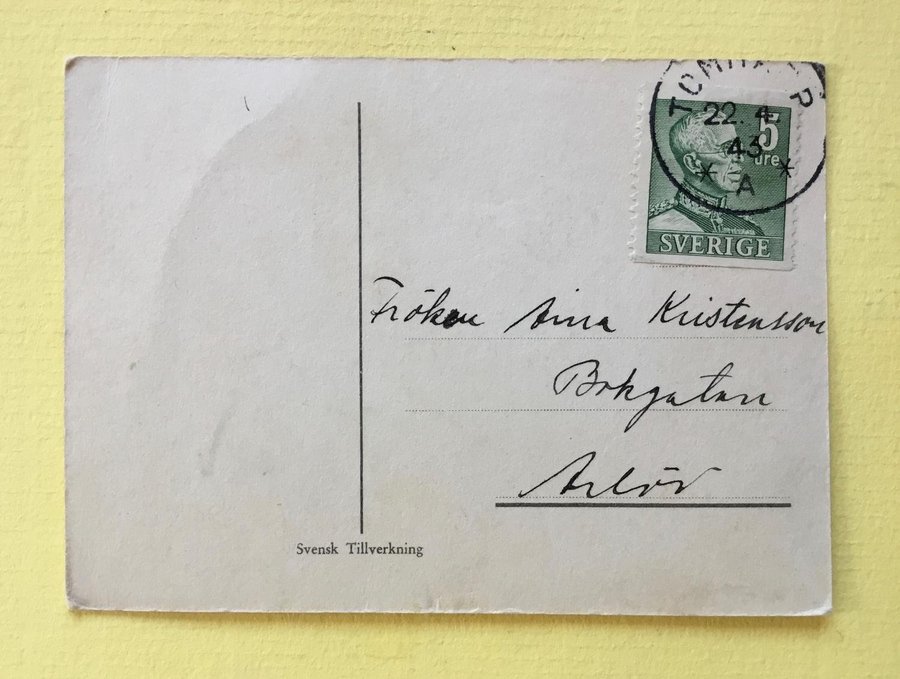 22. 4.
43
* A *
5
öre
SVERIGE
Fröken Aina Kristensson
Bokgatan
Arlöv
Svensk Tillverkning